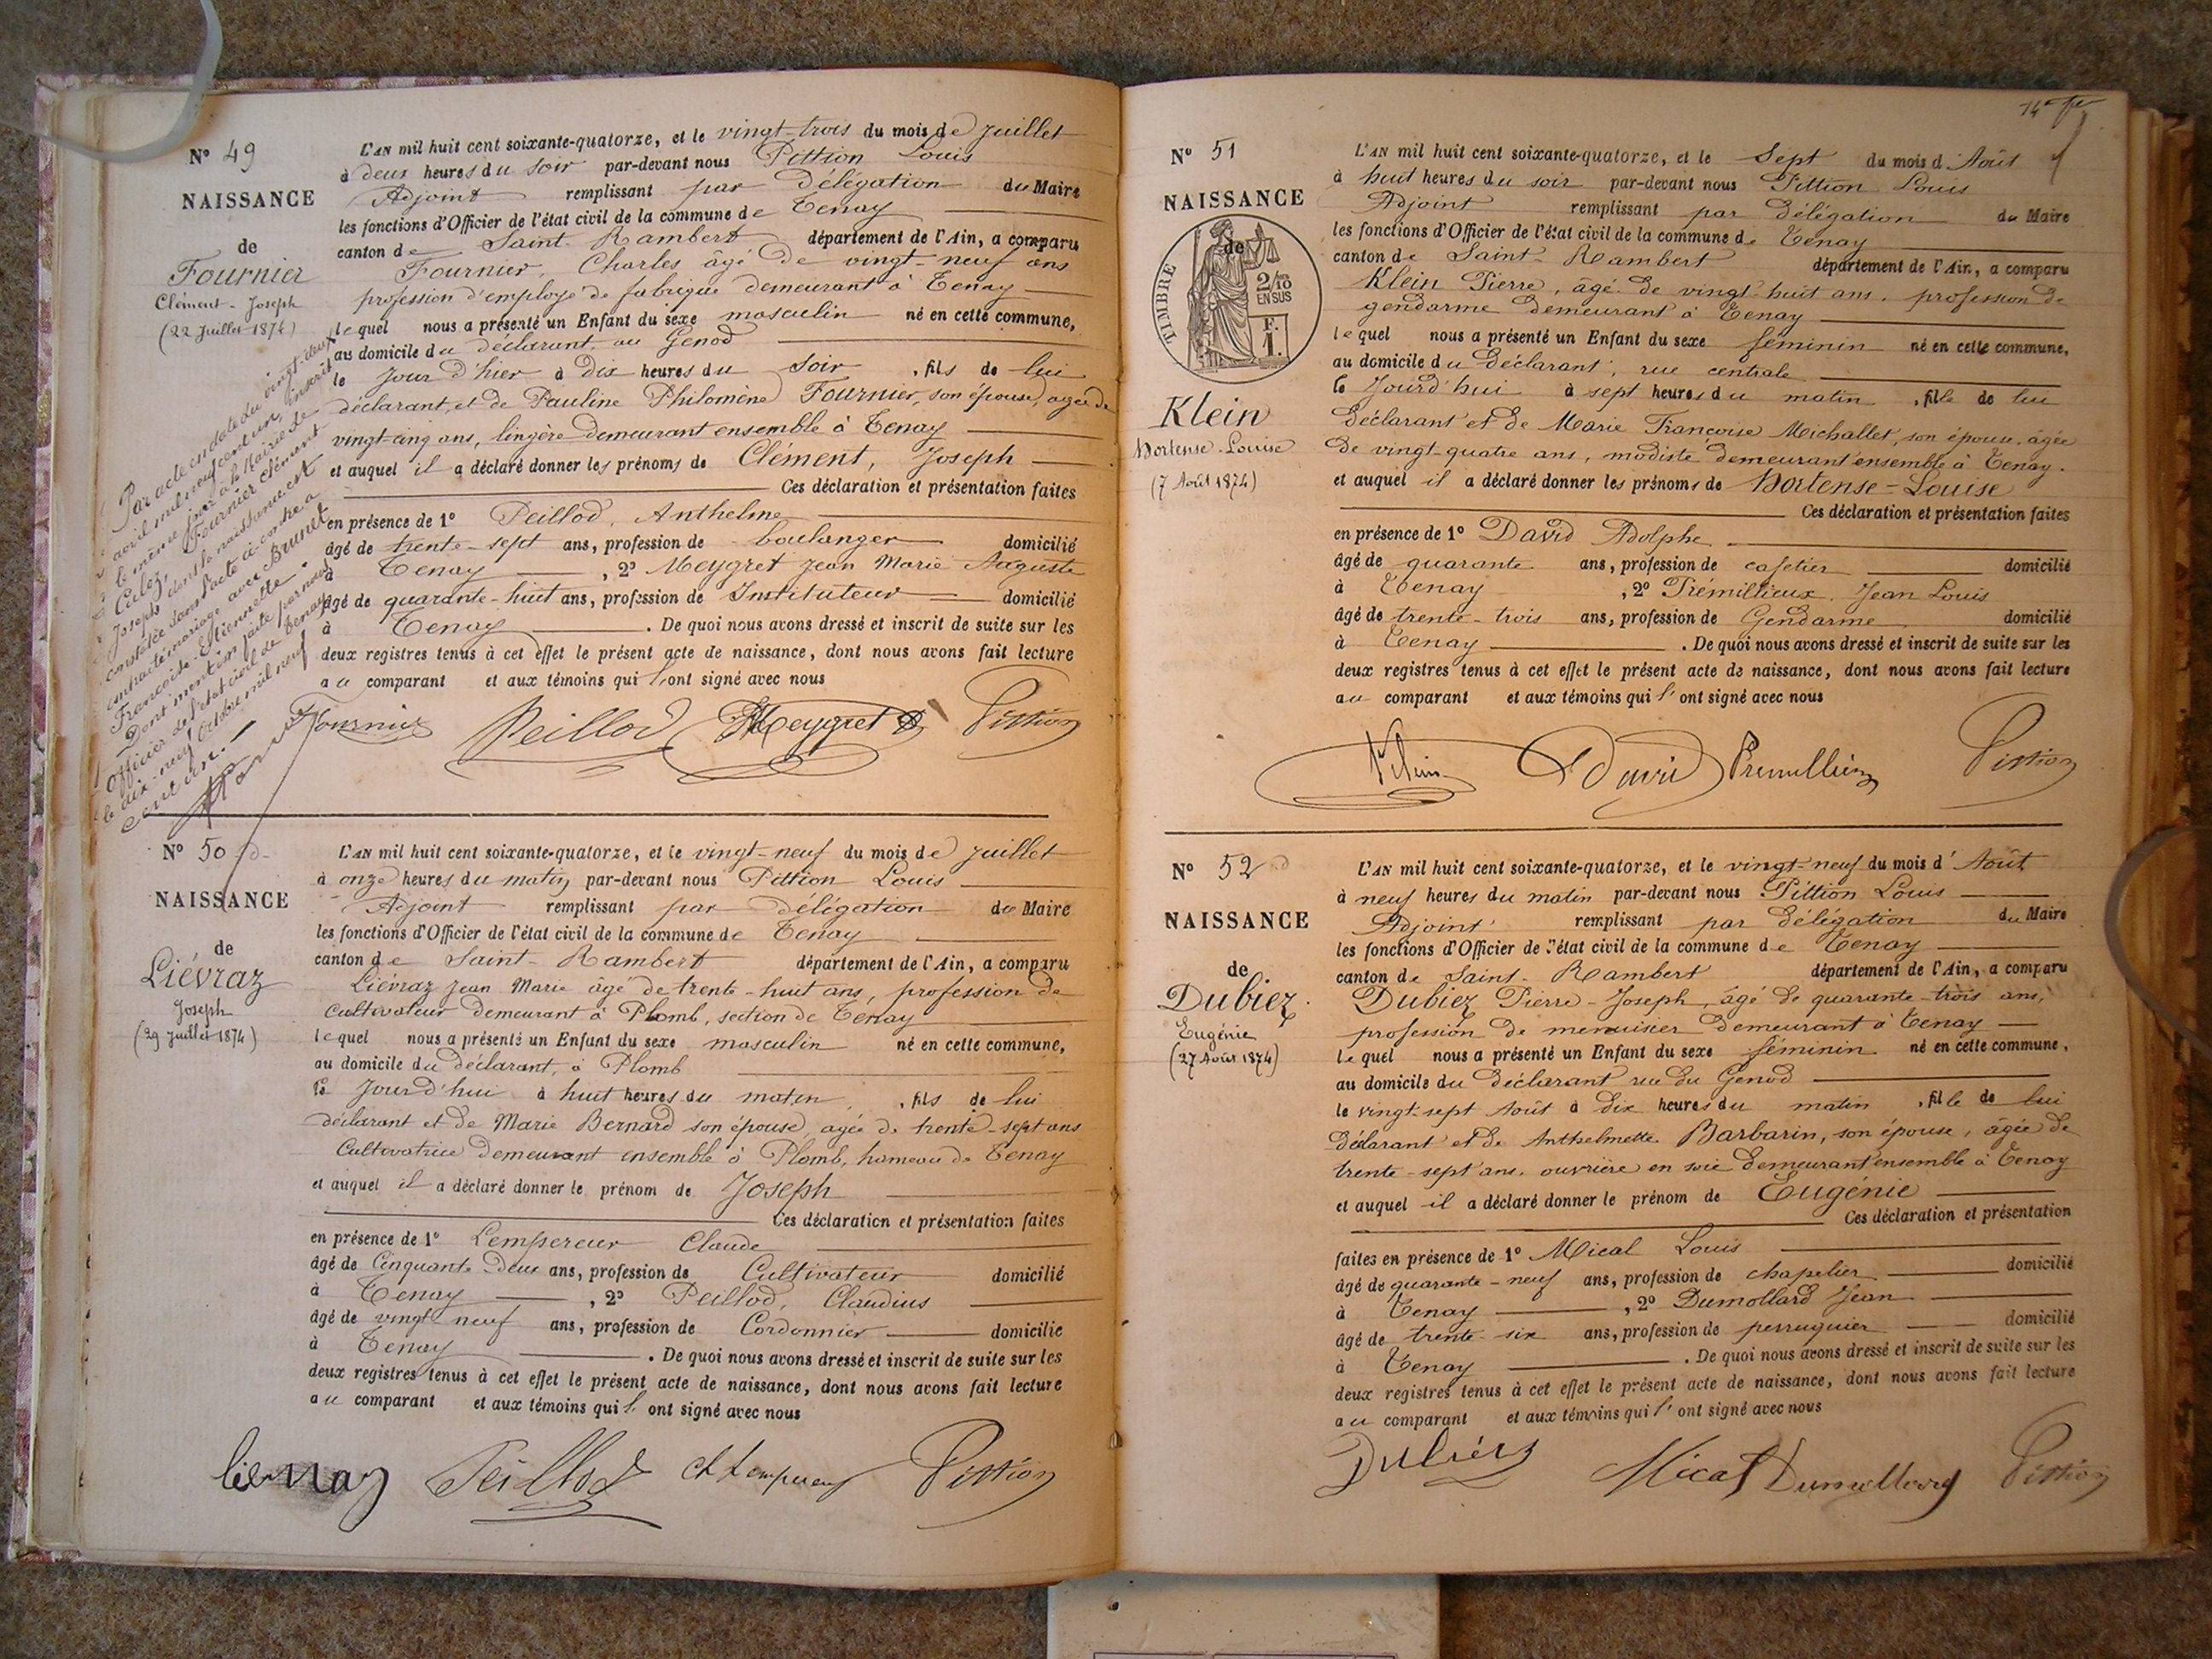 N° 49
NAISSANCE
de
Fournier
Clément-Joseph
(22 Juillet 1874)
L'AN mil huit cent soixante-quatorze, et le vingt-trois du mois de Juillet
à deux heures du soir par-devant nous Pittion Louis
Adjoint remplissant par Délégation du Maire
les fonctions d'Officier de l'état civil de la commune de Tenay
canton de Saint-Rambert département de l'Ain, a comparu
Fournier, Charles âgé de vingt-neuf ans
profession d'employé de fabrique demeurant à Tenay
lequel nous a présenté un Enfant du sexe masculin né en cette commune,
au domicile du déclarant, au Genod
le jour d'hier à dix heures du soir, fils de lui
déclarant, et de Pauline Philomène Fournier, son épouse, agée de
vingt-cinq ans, lingère demeurant ensemble à Tenay
et auquel il a déclaré donner les prénoms de Clément, Joseph
Ces déclaration et présentation faites
en présence de 1° Peillod, Anthelme
âgé de trente-sept ans, profession de boulanger domicilié
à Tenay, 2° Meygret Jean Marie Auguste
âgé de quarante-huit ans, profession de Instituteur domicilié
à Tenay. De quoi nous avons dressé et inscrit de suite sur les
deux registres tenus à cet effet le présent acte de naissance, dont nous avons fait lecture
au comparant et aux témoins qui l'ont signé avec nous
Fournier Peillod Meygret Pittion
Par acte en date du vingt-deux
avril mil neuf cent un, inscrit
le même jour à la Mairie de
Culoz, Fournier Clément
Joseph dont la naissance est
constatée dans l'acte ci-contre a
contracté mariage avec Brunet
Françoise Etiennette.
Dont mention faite par nous
Officier de l'état civil de Tenay
le dix-neuf Octobre mil neuf
cent un.
N° 50
NAISSANCE
de
Liévraz
Joseph
(29 Juillet 1874)
L'AN mil huit cent soixante-quatorze, et le vingt-neuf du mois de Juillet
à onze heures du matin par-devant nous Pittion Louis
Adjoint remplissant par délégation du Maire
les fonctions d'Officier de l'état civil de la commune de Tenay
canton de Saint-Rambert département de l'Ain, a comparu
Liévraz Jean Marie âgé de trente-huit ans, profession de
cultivateur demeurant à Plomb, section de Tenay
lequel nous a présenté un Enfant du sexe masculin né en cette commune,
au domicile du déclarant, à Plomb
le Jourd'hui à huit heures du matin, fils de lui
déclarant et de Marie Bernard son épouse, agée de trente-sept ans
Cultivatrice demeurant ensemble à Plomb, hameau de Tenay
et auquel il a déclaré donner le prénom de Joseph
Ces déclaration et présentation faites
en présence de 1° Lempereur Claude
âgé de Cinquante Deux ans, profession de Cultivateur domicilié
à Tenay, 2° Peillod, Claudius
âgé de vingt neuf ans, profession de Cordonnier domicilié
à Tenay. De quoi nous avons dressé et inscrit de suite sur les
deux registres tenus à cet effet le présent acte de naissance, dont nous avons fait lecture
au comparant et aux témoins qui l'ont signé avec nous
Peillod Cl Lempereur Pittion
N° 51
NAISSANCE
de
TIMBRE
2/10 EN SUS
F. 1.
Klein
Hortense-Louise
(7 Août 1874)
L'AN mil huit cent soixante-quatorze, et le Sept du mois d'Août
à huit heures du soir par-devant nous Pittion Louis
Adjoint remplissant par délégation du Maire
les fonctions d'Officier de l'état civil de la commune de Tenay
canton de Saint-Rambert département de l'Ain, a comparu
Klein Pierre, âgé de vingt-huit ans, profession de
gendarme demeurant à Tenay
lequel nous a présenté un Enfant du sexe féminin né en cette commune,
au domicile du déclarant, rue centrale
le Jourd'hui à sept heures du matin, fille de lui
Déclarant et de Marie Françoise Michallet, son épouse, âgée
de vingt-quatre ans, modiste demeurant ensemble à Tenay.
et auquel il a déclaré donner les prénoms de Hortense-Louise
Ces déclaration et présentation faites
en présence de 1° David Adolphe
âgé de quarante ans, profession de cafetier domicilié
à Tenay, 2° Prémillieux, Jean Louis
âgé de trente-trois ans, profession de Gendarme domicilié
à Tenay. De quoi nous avons dressé et inscrit de suite sur les
deux registres tenus à cet effet le présent acte de naissance, dont nous avons fait lecture
au comparant et aux témoins qui l'ont signé avec nous
Klein David Premillieux Pittion
N° 52
NAISSANCE
de
Dubiez.
Eugénie
(27 Août 1874)
L'AN mil huit cent soixante-quatorze, et le vingt-neuf du mois d'Août
à neuf heures du matin par-devant nous Pittion Louis
Adjoint remplissant par délégation du Maire
les fonctions d'Officier de l'état civil de la commune de Tenay
canton de Saint-Rambert département de l'Ain, a comparu
Dubiez Pierre-Joseph, âgé de quarante-trois ans,
profession de menuisier demeurant à Tenay
lequel nous a présenté un Enfant du sexe féminin né en cette commune,
au domicile du Déclarant rue du Genod
le vingt-sept Août à dix heures du matin, fille de lui
déclarant et de Anthelmette Barbarin, son épouse, âgée de
trente-sept ans, ouvrière en soie demeurant ensemble à Tenay
et auquel il a déclaré donner le prénom de Eugénie
Ces déclaration et présentation
faites en présence de 1° Mical Louis
âgé de quarante-neuf ans, profession de chapelier domicilié
à Tenay, 2° Dumollard Jean
âgé de trente six ans, profession de perruquier domicilié
à Tenay. De quoi nous avons dressé et inscrit de suite sur les
deux registres tenus à cet effet le présent acte de naissance, dont nous avons fait lecture
au comparant et aux témoins qui l'ont signé avec nous
Dubiez Mical Dumollard Pittion